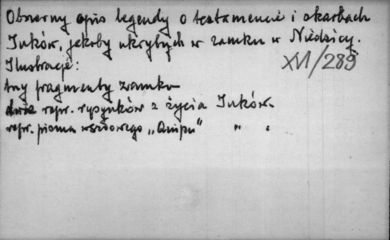 Obszerny opis legendy o testamencie i skarbach
Inków, jakoby ukrytych w zamku w Niedzicy.
Ilustracje:
XVI/289
trzy fragmenty zamku
dwie repr. rysunków z życia Inków.
repr. pisma węzłowego „Quipu” " "